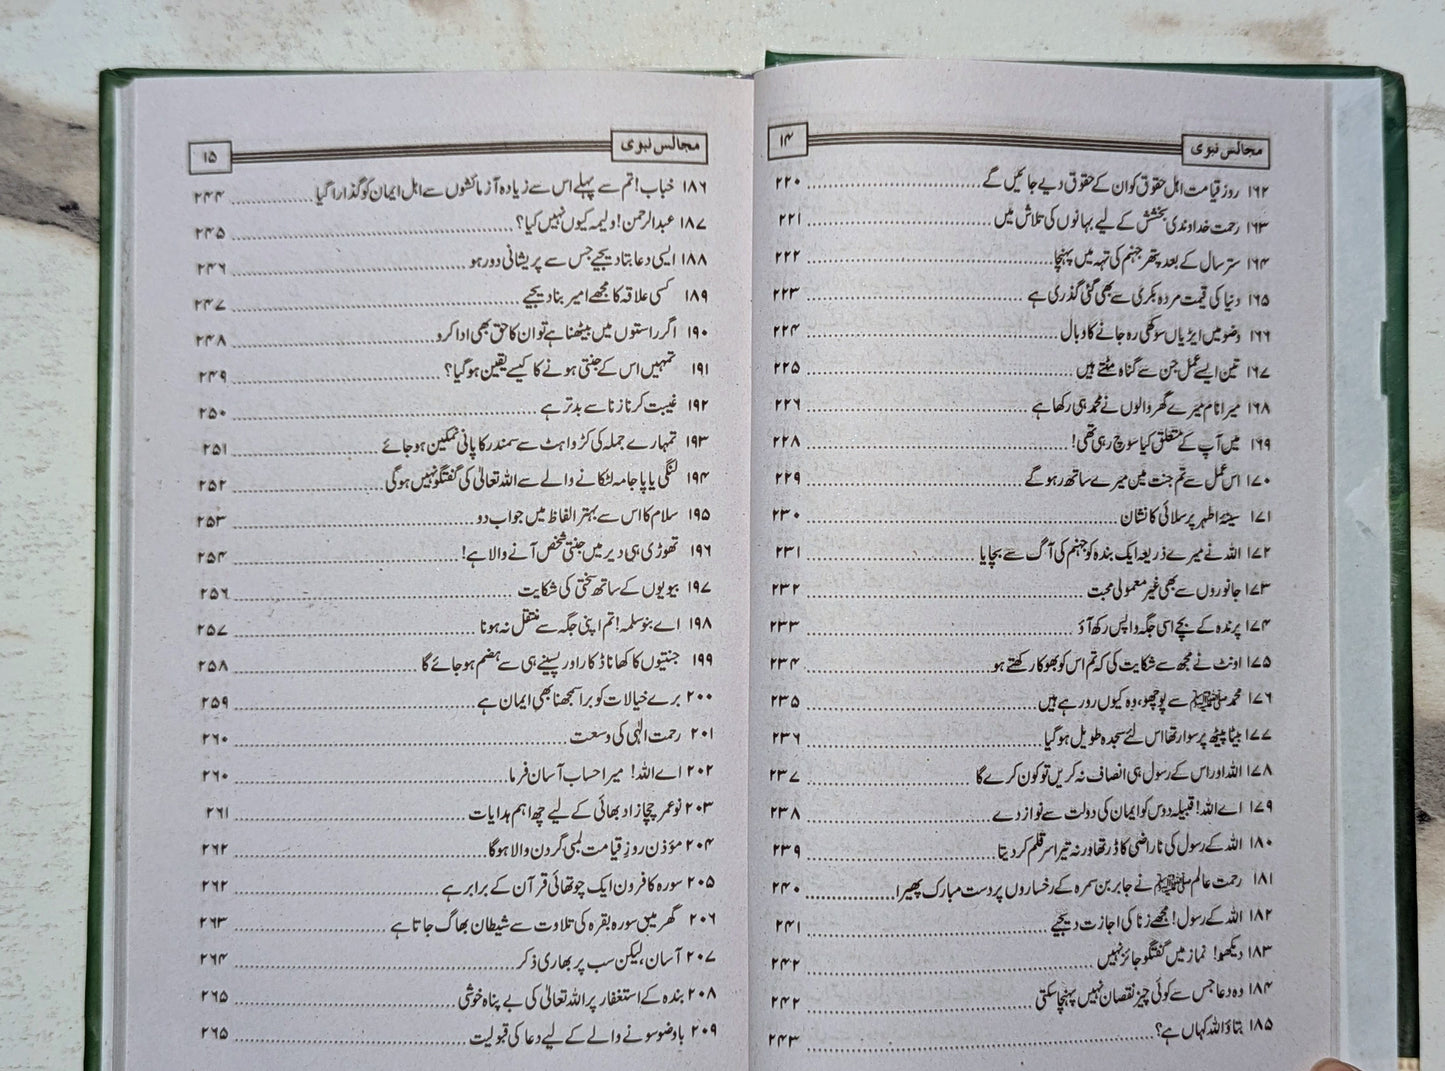 مجالس نبوی ۱۴
۱۶۲ روز قیامت اہل حقوق کو ان کے حقوق دیے جائیں گے ........ ۲۲۰
۱۶۳ رحمت خداوندی بخشش کے لیے بہانوں کی تلاش میں ........ ۲۲۱
۱۶۴ ستر سال کے بعد پتھر جہنم کی تہہ میں پہنچا ........ ۲۲۲
۱۶۵ دنیا کی قیمت مردہ بکری سے بھی گئی گذری ہے ........ ۲۲۳
۱۶۶ وضو میں ایڑیاں سوکھی رہ جانے کا وبال ........ ۲۲۴
۱۶۷ تین ایسے عمل جن سے گناہ مٹتے ہیں ........ ۲۲۵
۱۶۸ میرا نام میرے گھر والوں نے محمد ہی رکھا ہے ........ ۲۲۶
۱۶۹ میں آپ کے متعلق کیا سوچ رہی تھی! ........ ۲۲۸
۱۷۰ اس عمل سے تم جنت میں میرے ساتھ رہو گے ........ ۲۲۹
۱۷۱ سینۂ اطہر پر سلائی کا نشان ........ ۲۳۰
۱۷۲ اللہ نے میرے ذریعہ ایک بندہ کو جہنم کی آگ سے بچایا ........ ۲۳۱
۱۷۳ جانوروں سے بھی غیر معمولی محبت ........ ۲۳۲
۱۷۴ پرندہ کے بچے اسی جگہ واپس رکھ آؤ ........ ۲۳۳
۱۷۵ اونٹ نے مجھ سے شکایت کی کہ تم اس کو بھوکا رکھتے ہو ........ ۲۳۴
۱۷۶ محمد ﷺ سے پوچھو، وہ کیوں رو رہے ہیں ........ ۲۳۵
۱۷۷ بیٹا پیٹھ پر سوار تھا اس لئے سجدہ طویل ہوگیا ........ ۲۳۶
۱۷۸ اللہ اور اس کے رسول ہی انصاف نہ کریں تو کون کرے گا ........ ۲۳۷
۱۷۹ اے اللہ! قبیلہ دوس کو ایمان کی دولت سے نواز دے ........ ۲۳۸
۱۸۰ اللہ کے رسول کی ناراضی کا ڈر تھا ورنہ تیرا سر قلم کر دیتا ........ ۲۳۹
۱۸۱ رحمت عالم ﷺ نے جابر بن سمرہ کے رخساروں پر دست مبارک پھیرا ........ ۲۴۰
۱۸۲ اللہ کے رسول! مجھے زنا کی اجازت دیجیے ........ ۲۴۱
۱۸۳ دیکھو! نماز میں گفتگو جائز نہیں ........ ۲۴۲
۱۸۴ وہ دعا جس سے کوئی چیز نقصان نہیں پہنچا سکتی ........ ۲۴۲
۱۸۵ بتاؤ اللہ کہاں ہے؟ ........ ۲۴۳
مجالس نبوی ۱۵
۱۸۶ خباب! تم سے پہلے اس سے زیادہ آزمائشوں سے اہل ایمان کو گذارا گیا ........ ۲۴۴
۱۸۷ عبدالرحمن! ولیمہ کیوں نہیں کیا؟ ........ ۲۴۵
۱۸۸ ایسی دعا بتا دیجیے جس سے پریشانی دور ہو ........ ۲۴۶
۱۸۹ کسی علاقہ کا مجھے امیر بنا دیجیے ........ ۲۴۷
۱۹۰ اگر راستوں میں بیٹھنا ہے تو ان کا حق بھی ادا کرو ........ ۲۴۸
۱۹۱ تمہیں اس کے جنتی ہونے کا کیسے یقین ہوگیا؟ ........ ۲۴۹
۱۹۲ غیبت کرنا زنا سے بدتر ہے ........ ۲۵۰
۱۹۳ تمہارے جملہ کی کڑواہٹ سے سمندر کا پانی نمکین ہو جائے ........ ۲۵۱
۱۹۴ لنگی یا پاجامہ لٹکانے والے سے اللہ تعالیٰ کی گفتگو نہیں ہوگی ........ ۲۵۲
۱۹۵ سلام کا اس سے بہتر الفاظ میں جواب دو ........ ۲۵۳
۱۹۶ تھوڑی ہی دیر میں جنتی شخص آنے والا ہے! ........ ۲۵۴
۱۹۷ بیویوں کے ساتھ سختی کی شکایت ........ ۲۵۶
۱۹۸ اے بنو سلمہ! تم اپنی جگہ سے منتقل نہ ہونا ........ ۲۵۷
۱۹۹ جنتیوں کا کھانا ڈکار اور پسینے ہی سے ہضم ہو جائے گا ........ ۲۵۸
۲۰۰ برے خیالات کو برا سمجھنا بھی ایمان ہے ........ ۲۵۹
۲۰۱ رحمت الٰہی کی وسعت ........ ۲۶۰
۲۰۲ اے اللہ! میرا حساب آسان فرما ........ ۲۶۰
۲۰۳ نو عمر چچازاد بھائی کے لیے چھ اہم ہدایات ........ ۲۶۱
۲۰۴ مؤذن روزِ قیامت لمبی گردن والا ہوگا ........ ۲۶۲
۲۰۵ سورہ کافرون ایک چوتھائی قرآن کے برابر ہے ........ ۲۶۲
۲۰۶ گھر میں سورہ بقرہ کی تلاوت سے شیطان بھاگ جاتا ہے ........ ۲۶۳
۲۰۷ آسان، لیکن سب پر بھاری ذکر ........ ۲۶۴
۲۰۸ بندہ کے استغفار پر اللہ تعالیٰ کی بے پناہ خوشی ........ ۲۶۵
۲۰۹ باوضو سونے والے کے لیے دعا کی قبولیت ........ ۲۶۵